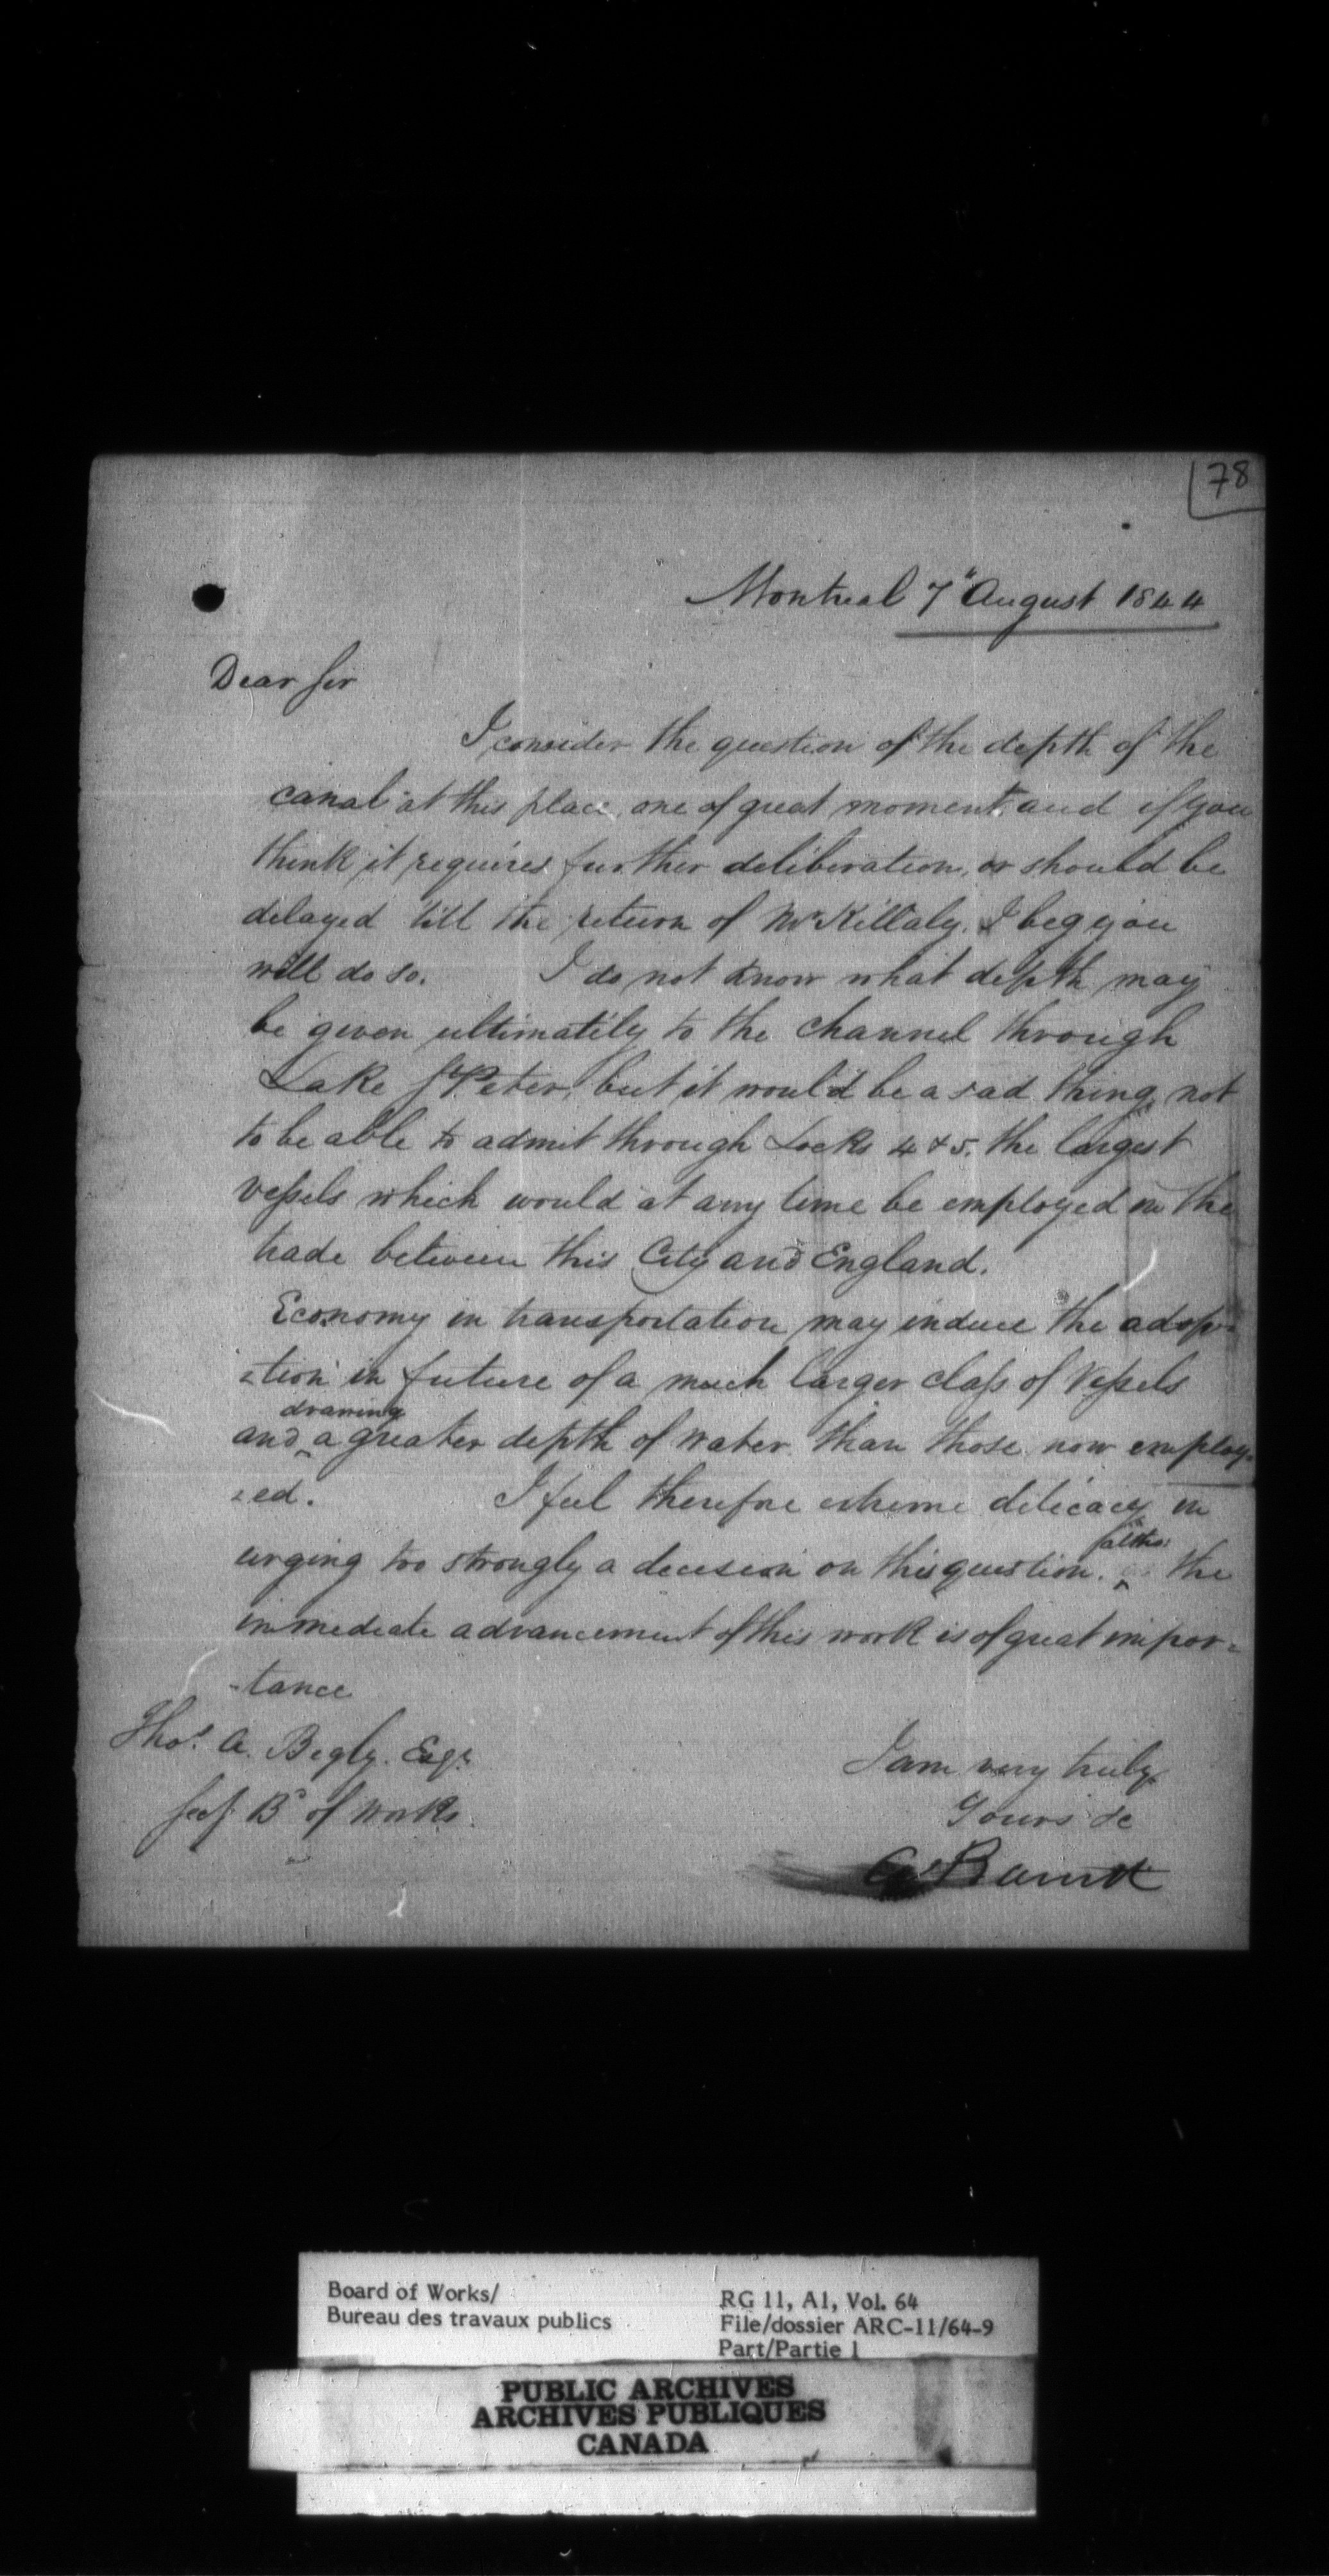 78
Montreal 7" August 1844
Dear Sir
I consider the question of the depth of the
canal at this place, one of great moment, and if you
think it requires further deliberation, or should be
delayed till the return of Mr Killaly. I beg you
will do so. I do not know what depth may
be given ultimately to the channel through
Lake St Peter, but it would be a sad thing not
to be able to admit through Locks 4 & 5. the largest
vessels which would at any time be employed in the
trade between this City and England.
Economy in transportation may induce the adop-
-tion in future of a much larger class of Vessels
drawing
and a greater depth of water than those now employ-
-ed. I feel therefore extreme delicacy in
altho:
urging too strongly a decision on this question. the
immediate advancement of this work is of great impor-
-tance
Thos. A. Begly. Esqr.
Secy Bd of Works.
I am very truly
Yours &c
Barrett
Board of Works/
Bureau des travaux publics
RG 11, A1, Vol. 64
File/dossier ARC-11/64-9
Part/Partie 1
PUBLIC ARCHIVES
ARCHIVES PUBLIQUES
CANADA